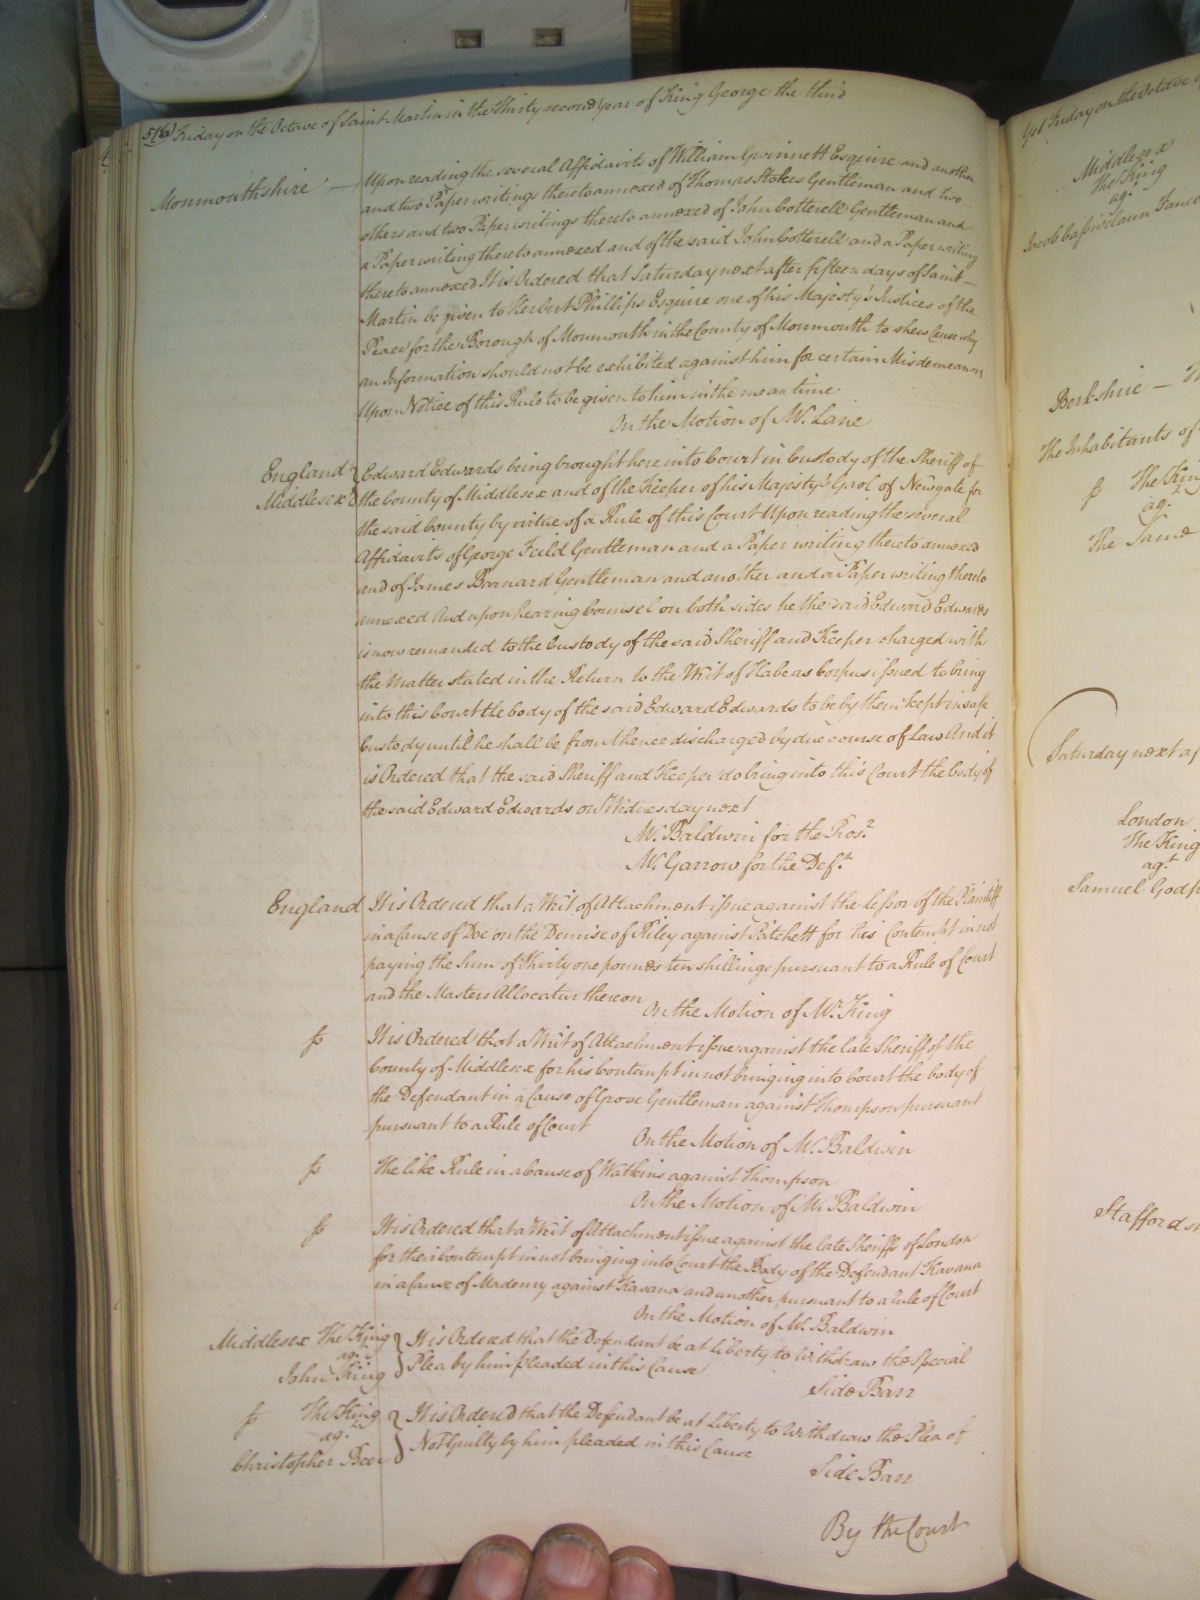 516 Friday on the Octave of Saint Martin in the Thirty second year of King George the third
Monmouthshire — Upon reading the several Affidavits of William Gwinnett Esquire and another
and two Paper writings thereto annexed of Thomas Stokes Gentleman and two
others and two Paper writings thereto annexed of John Cotterell Gentleman and
a Paper writing thereto annexed and of the said John Cotterell and a Paper writing
thereto annexed It is Ordered that Saturday next after fifteen days of Saint —
Martin be given to Herbert Phillips Esquire one of his Majesty's Justices of the
Peace for the Borough of Monmouth in the County of Monmouth to shew Cause why
an Information should not be exhibited against him for certain Misdemeanors
Upon Notice of this Rule to be given to him in the mean time
On the Motion of Mr. Lane
England
Middlesex
Edward Edwards being brought here into Court in Custody of the Sheriff of
the County of Middlesex and of the Keeper of his Majesty's Gaol of Newgate for
the said County by virtue of a Rule of this Court Upon reading the several
Affidavits of George Feild Gentleman and a Paper writing thereto annexed
and of James Barnard Gentleman and another and a Paper writing thereto
annexed And upon hearing Counsel on both sides he the said Edward Edwards
is now remanded to the Custody of the said Sheriff and Keeper charged with
the Matter stated in the Return to the Writ of Habeas Corpus issued to bring
into this Court the body of the said Edward Edwards to be by them kept in safe
Custody until he shall be from thence discharged by due course of Law And it
is Ordered that the said Sheriff and Keeper do bring into this Court the body of
the said Edward Edwards on Wednesday next
Mr. Baldwin for the Pros.r
Mr. Garrow for the Def.t
England It is Ordered that a Writ of Attachment issue against the lessor of the Plaintiff
in a Cause of Doe on the Demise of Riley against Pitchett for his Contempt in not
paying the Sum of Thirty one pounds ten shillings pursuant to a Rule of Court
and the Masters Allocatur thereon
On the Motion of Mr. King
It is Ordered that a Writ of Attachment issue against the late Sheriff of the
County of Middlesex for his Contempt in not bringing into Court the body of
the Defendant in a Cause of Grove Gentleman against Thompson pursuant
pursuant to a Rule of Court
On the Motion of Mr. Baldwin
The like Rule in a Cause of Watkins against Thompson
On the Motion of Mr. Baldwin
It is Ordered that a Writ of Attachment issue against the late Sheriffs of London
for their Contempt in not bringing into Court the Body of the Defendant Kavana
in a Cause of against Kavana and another pursuant to a rule of Court
On the Motion of Mr. Baldwin
Middlesex The King
ag.t
John King
It is Ordered that the Defendant be at liberty to Withdraw the Special
Plea by him pleaded in this Cause
Side Barr
The King
ag.t
Christopher Beer
It is Ordered that the Defendant be at Liberty to Withdraw the Plea of
Not Guilty by him pleaded in this Cause
Side Barr
By the Court
Yet Friday on the Octave
Middlesex
The King
ag.t
Berkshire —
The Inhabitants of
The King
ag.t
The Same
Saturday next
London
The King
ag.t
Samuel